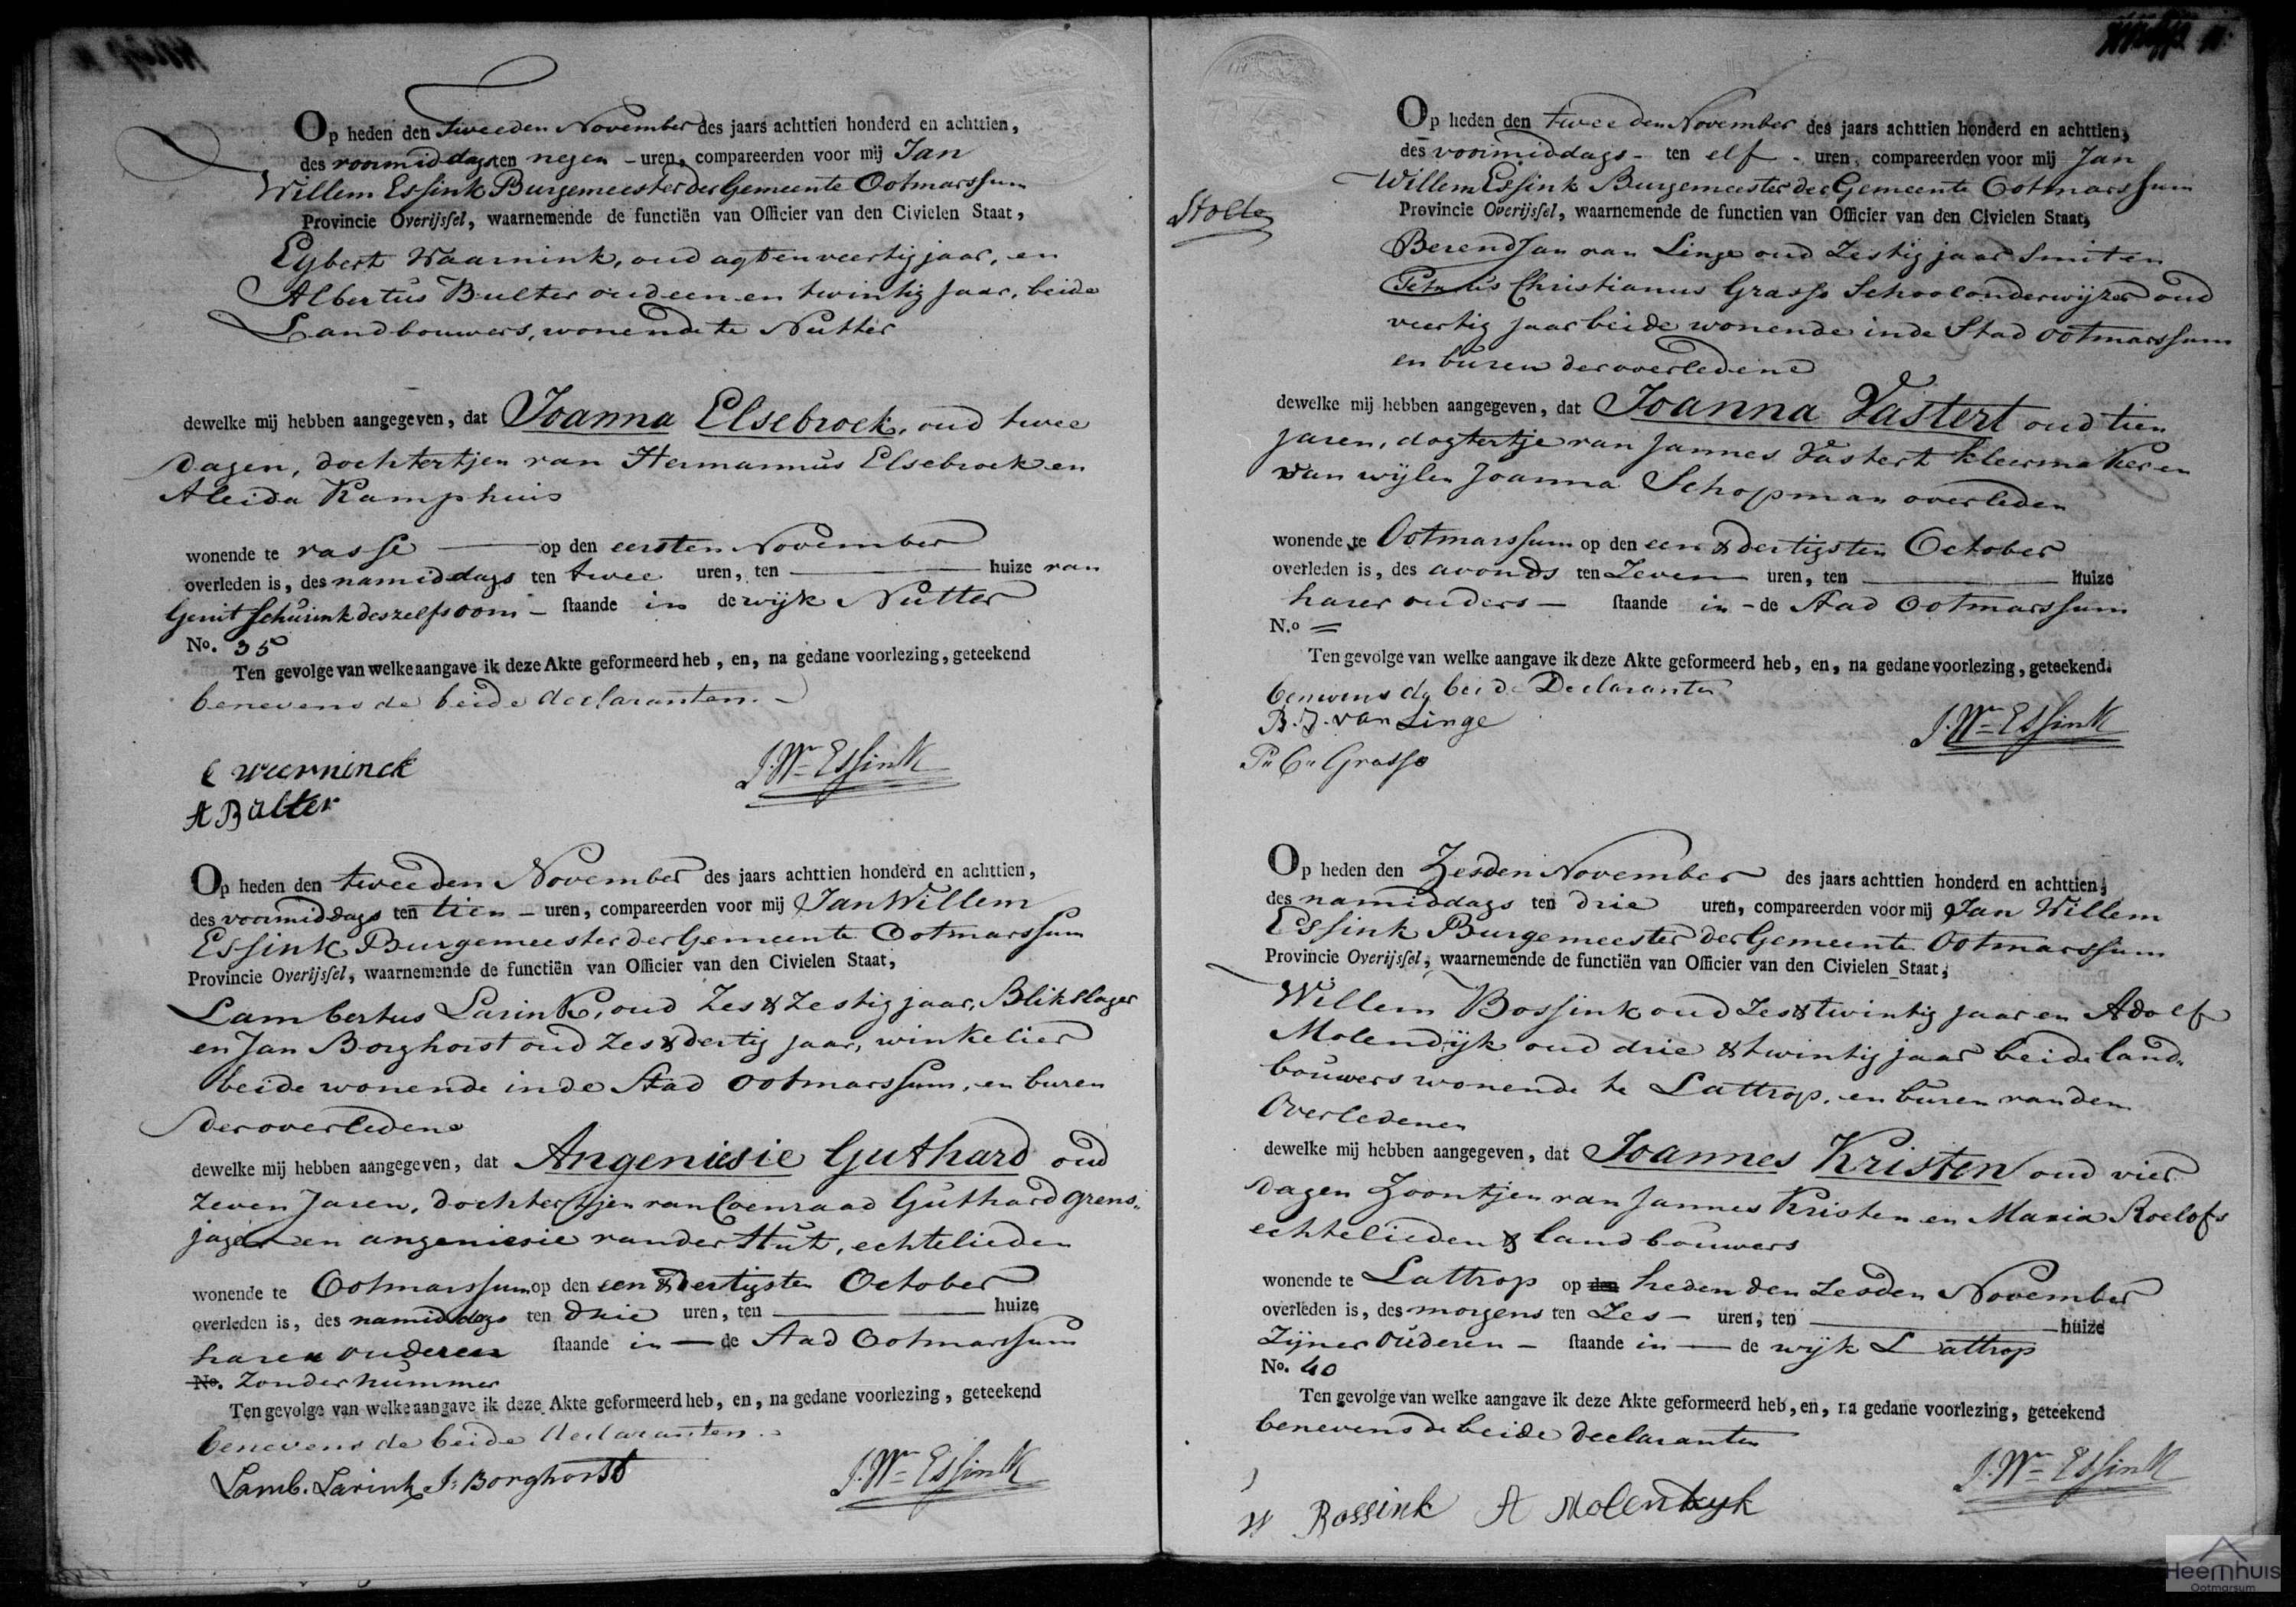 Op heden den tweeden November des jaars achttien honderd en achttien,
des voormiddags ten negen - uren, compareerden voor mij Jan
Willem Essink Burgemeester der Gemeente Ootmarssum
Provincie Overijssel, waarnemende de functiën van Officier van den Civielen Staat,
Egbert Waarnink, oud agt en veertig jaar, en
Albertus Bulter oud een en twintig Jaar, beide
Landbouwers, wonende te Nutter
dewelke mij hebben aangegeven, dat Joanna Elsebroek, oud twee
dagen, dochtertjen van Hermannus Elsebroek en
Aleida Kamphuis
wonende te vasse op den eersten November
overleden is, des namiddags ten twee uren, ten huize van
Gerrit Schurink deszelfs oom - staande in de wijk Nutter
No. 35
Ten gevolge van welke aangave ik deze Akte geformeerd heb, en, na gedane voorlezing, geteekend
benevens de beide declaranten.
E weerninck
J. Wm Essink
A Bulter
Op heden den tweeden November des jaars achttien honderd en achttien,
des voormiddags ten tien - uren, compareerden voor mij Jan Willem
Essink Burgemeester der Gemeente Ootmarssum
Provincie Overijssel, waarnemende de functiën van Officier van den Civielen Staat,
Lambertus Larink, oud Zes & Zestig jaar, Blikslager
en Jan Borghorst oud Zes & dertig jaar, winkelier
beide wonende in de Stad Ootmarssum, en buren
der overledene
dewelke mij hebben aangegeven, dat Angeniesie Guthard oud
Zeven Jaren, dochtertjen van Coenraad Guthard grens-
jager en angeniesie van der Hut, echtelieden
wonende te Ootmarssum op den een & dertigsten October
overleden is, des namiddags ten drie uren, ten huize
haren ouderen staande in - de Stad Ootmarssum
No. Zonder nummer
Ten gevolge van welke aangave ik deze Akte geformeerd heb, en, na gedane voorlezing, geteekend
benevens de beide declaranten.
Lamb. Larink J: Borghorst
J. Wm Essink
Op heden den tweeden November des jaars achttien honderd en achttien,
des voormiddags - ten elf - uren, compareerden voor mij Jan
Willem Essink Burgemeester der Gemeente Ootmarssum
Provincie Overijssel, waarnemende de functien van Officier van den Civielen Staat,
Berend Jan van Linge oud Zestig jaar Smit en
Petrus Christianus Grasso Schoolonderwijzer oud
veertig Jaar beide wonende in de Stad Ootmarssum
en buren der overledene
dewelke mij hebben aangegeven, dat Joanna Vastert oud tien
jaren, dogtertje van Jannes Vastert kleermaker en
van wijlen Joanna Schopman overleden
wonende te Ootmarssum op den een & dertigsten October
overleden is, des avonds ten Zeven uren, ten huize
harer ouders - staande in - de Stad Ootmarssum
N.o =
Ten gevolge van welke aangave ik deze Akte geformeerd heb, en, na gedane voorlezing, geteekend.
benevens de beide Declaranten
B. J. van Linge
J. Wm Essink
Pu Cu Grasso
Op heden den Zesden November des jaars achttien honderd en achttien,
des namiddags ten drie uren, compareerden voor mij Jan Willem
Essink Burgemeester der Gemeente Ootmarssum
Provincie Overijssel, waarnemende de functiën van Officier van den Civielen Staat,
Willem Bossink oud Zes & twintig jaar en Adolf
Molendijk oud drie & twintig jaar beide land-
bouwers wonende te Lattrop, en buren van den
Overledenen
dewelke mij hebben aangegeven, dat Joannes Kristen oud vier
dagen Zoontjen van Jannes Kristen en Maria Roelofs
echtelieden & landbouwers
wonende te Lattrop op den heden den Zesden November
overleden is, des morgens ten Zes - uren, ten huize
Zijner Ouderen - staande in - de wijk Lattrop
No. 40
Ten gevolge van welke aangave ik deze Akte geformeerd heb, en, na gedane voorlezing, geteekend
benevens de beide declaranten
J. Wm Essink
W Bossink A Molendyk
Heemhuis
Ootmarsum